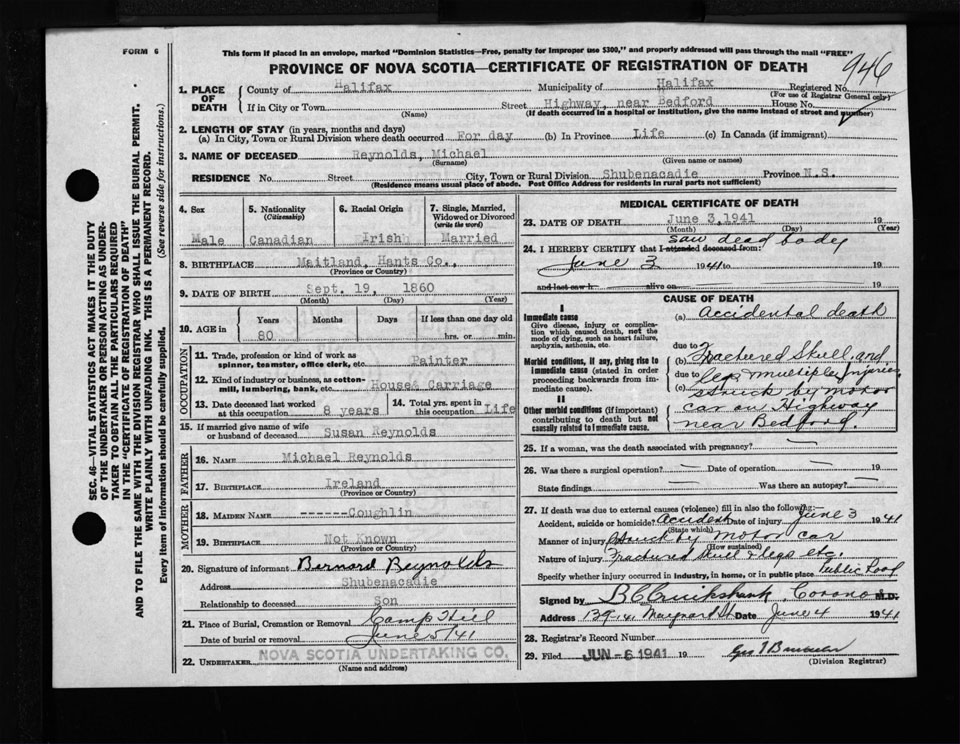 FORM 6
This form if placed in an envelope, marked "Dominion Statistics—Free, penalty for improper use $300," and properly addressed will pass through the mail "FREE"
PROVINCE OF NOVA SCOTIA—CERTIFICATE OF REGISTRATION OF DEATH
946
1. PLACE OF DEATH
County of Halifax Municipality of Halifax Registered No.
(For use of Registrar General only)
If in City or Town Street Highway, near Bedford House No.
(Name) (If death occurred in a hospital or institution, give the name instead of street and number)
2. LENGTH OF STAY (in years, months and days)
(a) In City, Town or Rural Division where death occurred For day (b) In Province Life (c) In Canada (if immigrant)
3. NAME OF DECEASED Reynolds, Michael
(Surname) (Given name or names)
RESIDENCE No. Street City, Town or Rural Division Shubenacadie Province N.S.
(Residence means usual place of abode. Post Office Address for residents in rural parts not sufficient)
4. Sex Male
5. Nationality (Citizenship) Canadian
6. Racial Origin Irish
7. Single, Married, Widowed or Divorced (write the word) Married
8. BIRTHPLACE Maitland, Hants Co.,
(Province or Country)
9. DATE OF BIRTH Sept. 19, 1860
(Month) (Day) (Year)
10. AGE in Years Months Days If less than one day old
80 hrs. or min.
OCCUPATION
11. Trade, profession or kind of work as spinner, teamster, office clerk, etc. Painter
12. Kind of industry or business, as cotton-mill, lumbering, bank, etc. House& Carriage
13. Date deceased last worked at this occupation 8 years
14. Total yrs. spent in this occupation Life
15. If married give name of wife or husband of deceased Susan Reynolds
FATHER
16. NAME Michael Reynolds
17. BIRTHPLACE Ireland
(Province or Country)
MOTHER
18. MAIDEN NAME ------Coughlin
19. BIRTHPLACE Not Known
(Province or Country)
20. Signature of informant Bernard Reynolds
Address Shubenacadie
Relationship to deceased Son
21. Place of Burial, Cremation or Removal Camp Hill
Date of burial or removal June 5/41
22. UNDERTAKER NOVA SCOTIA UNDERTAKING CO.
(Name and address)
MEDICAL CERTIFICATE OF DEATH
23. DATE OF DEATH June 3, 1941 19
(Month) (Day) (Year)
24. I HEREBY CERTIFY that I attended deceased from: saw dead body
June 3 1941 to 19
and last saw h alive on 19
CAUSE OF DEATH
I
Immediate cause
Give disease, injury or complication which caused death, not the mode of dying, such as heart failure, asphyxia, asthenia, etc.
Morbid conditions, if any, giving rise to immediate cause (stated in order proceeding backwards from immediate cause).
II
Other morbid conditions (if important) contributing to death but not causally related to immediate cause.
(a) Accidental death
due to
(b) Fractured Skull and
due to legs multiple injuries
(c) struck by motor
car on Highway
near Bedford.
25. If a woman, was the death associated with pregnancy? —
26. Was there a surgical operation? — Date of operation — 19
State findings Was there an autopsy? —
27. If death was due to external causes (violence) fill in also the following:
Accident, suicide or homicide? Accident Date of injury June 3 1941
(State which)
Manner of injury Struck by motor car
(How sustained)
Nature of injury Fractured skull & legs etc.
Specify whether injury occurred in industry, in home, or in public place Public Road
Signed by Corono M.D.
Address Maynard St Date June 4 1941
28. Registrar's Record Number
29. Filed JUN -6 1941 19
(Division Registrar)
SEC. 46—VITAL STATISTICS ACT MAKES IT THE DUTY
OF THE UNDERTAKER OR PERSON ACTING AS UNDER-
TAKER TO OBTAIN ALL THE PARTICULARS REQUIRED
IN THE "CERTIFICATE OF REGISTRATION OF DEATH"
AND TO FILE THE SAME WITH THE DIVISION REGISTRAR WHO SHALL ISSUE THE BURIAL PERMIT.
WRITE PLAINLY WITH UNFADING INK. THIS IS A PERMANENT RECORD.
Every item of information should be carefully supplied. (See reverse side for instructions.)